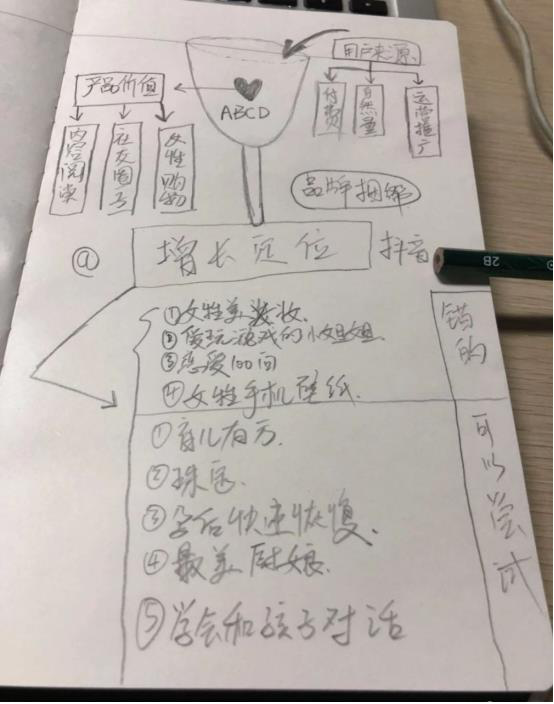 用户来源
产品价值
ABCD
付费
自然量
运营推广
内容阅读
社交圈子
女性购物
品牌捆绑
@
增长定位
抖音
2B
①女性美妆.
②爱玩游戏的小姐姐
③恋爱100问
④女性手机壁纸.
错的
①育儿有方.
②珠宝.
③孕后快速恢复.
④最美厨娘.
⑤学会和孩子对话
可以尝试